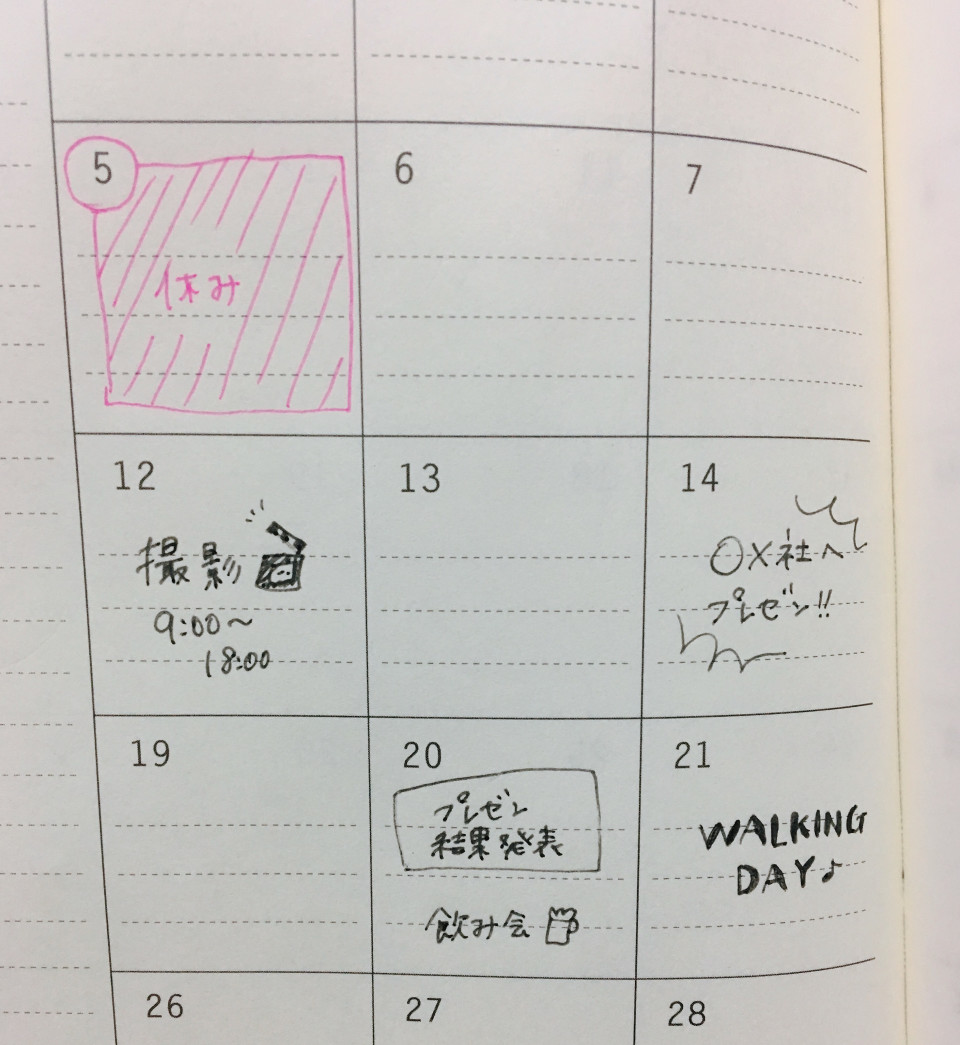 5
休み
6
7
12
撮影
9:00〜
18:00
13
14
○×社へ
プレゼン!!
19
20
プレゼン
結果発表
飲み会
21
WALKING
DAY♪
26
27
28